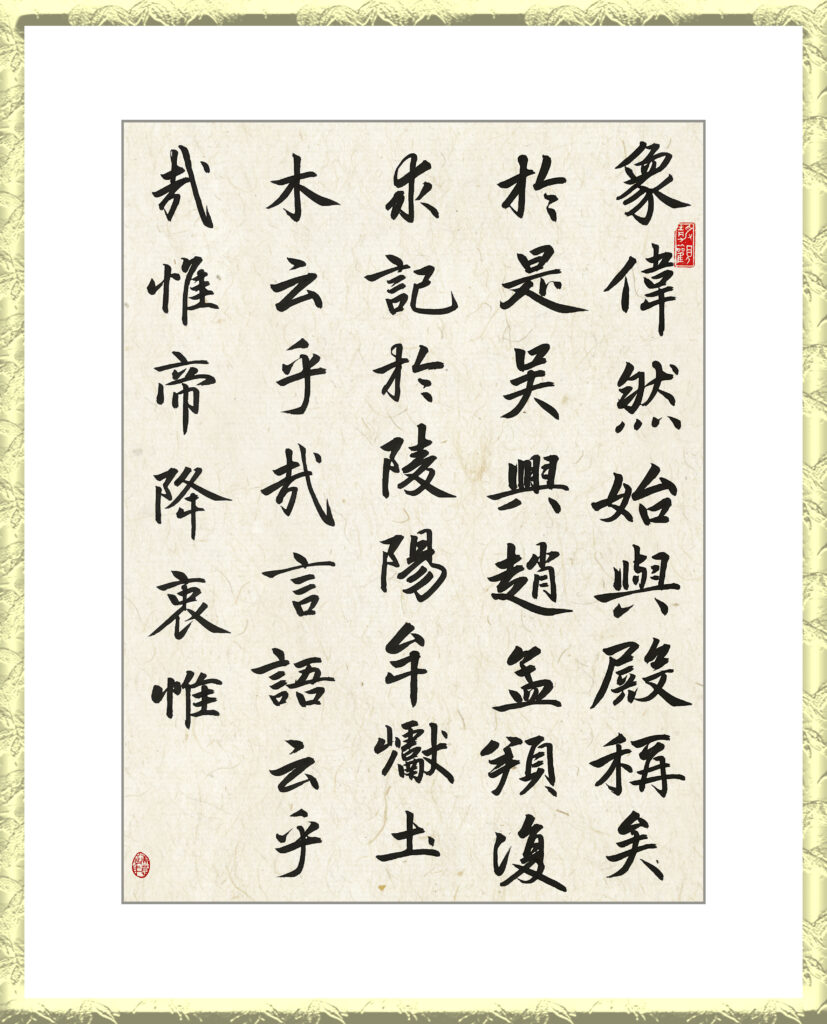 象偉然始與殿稱矣
於是吴興趙孟頫復
求記於陵陽牟巘土
木云乎哉言語云乎
哉惟帝降衷惟